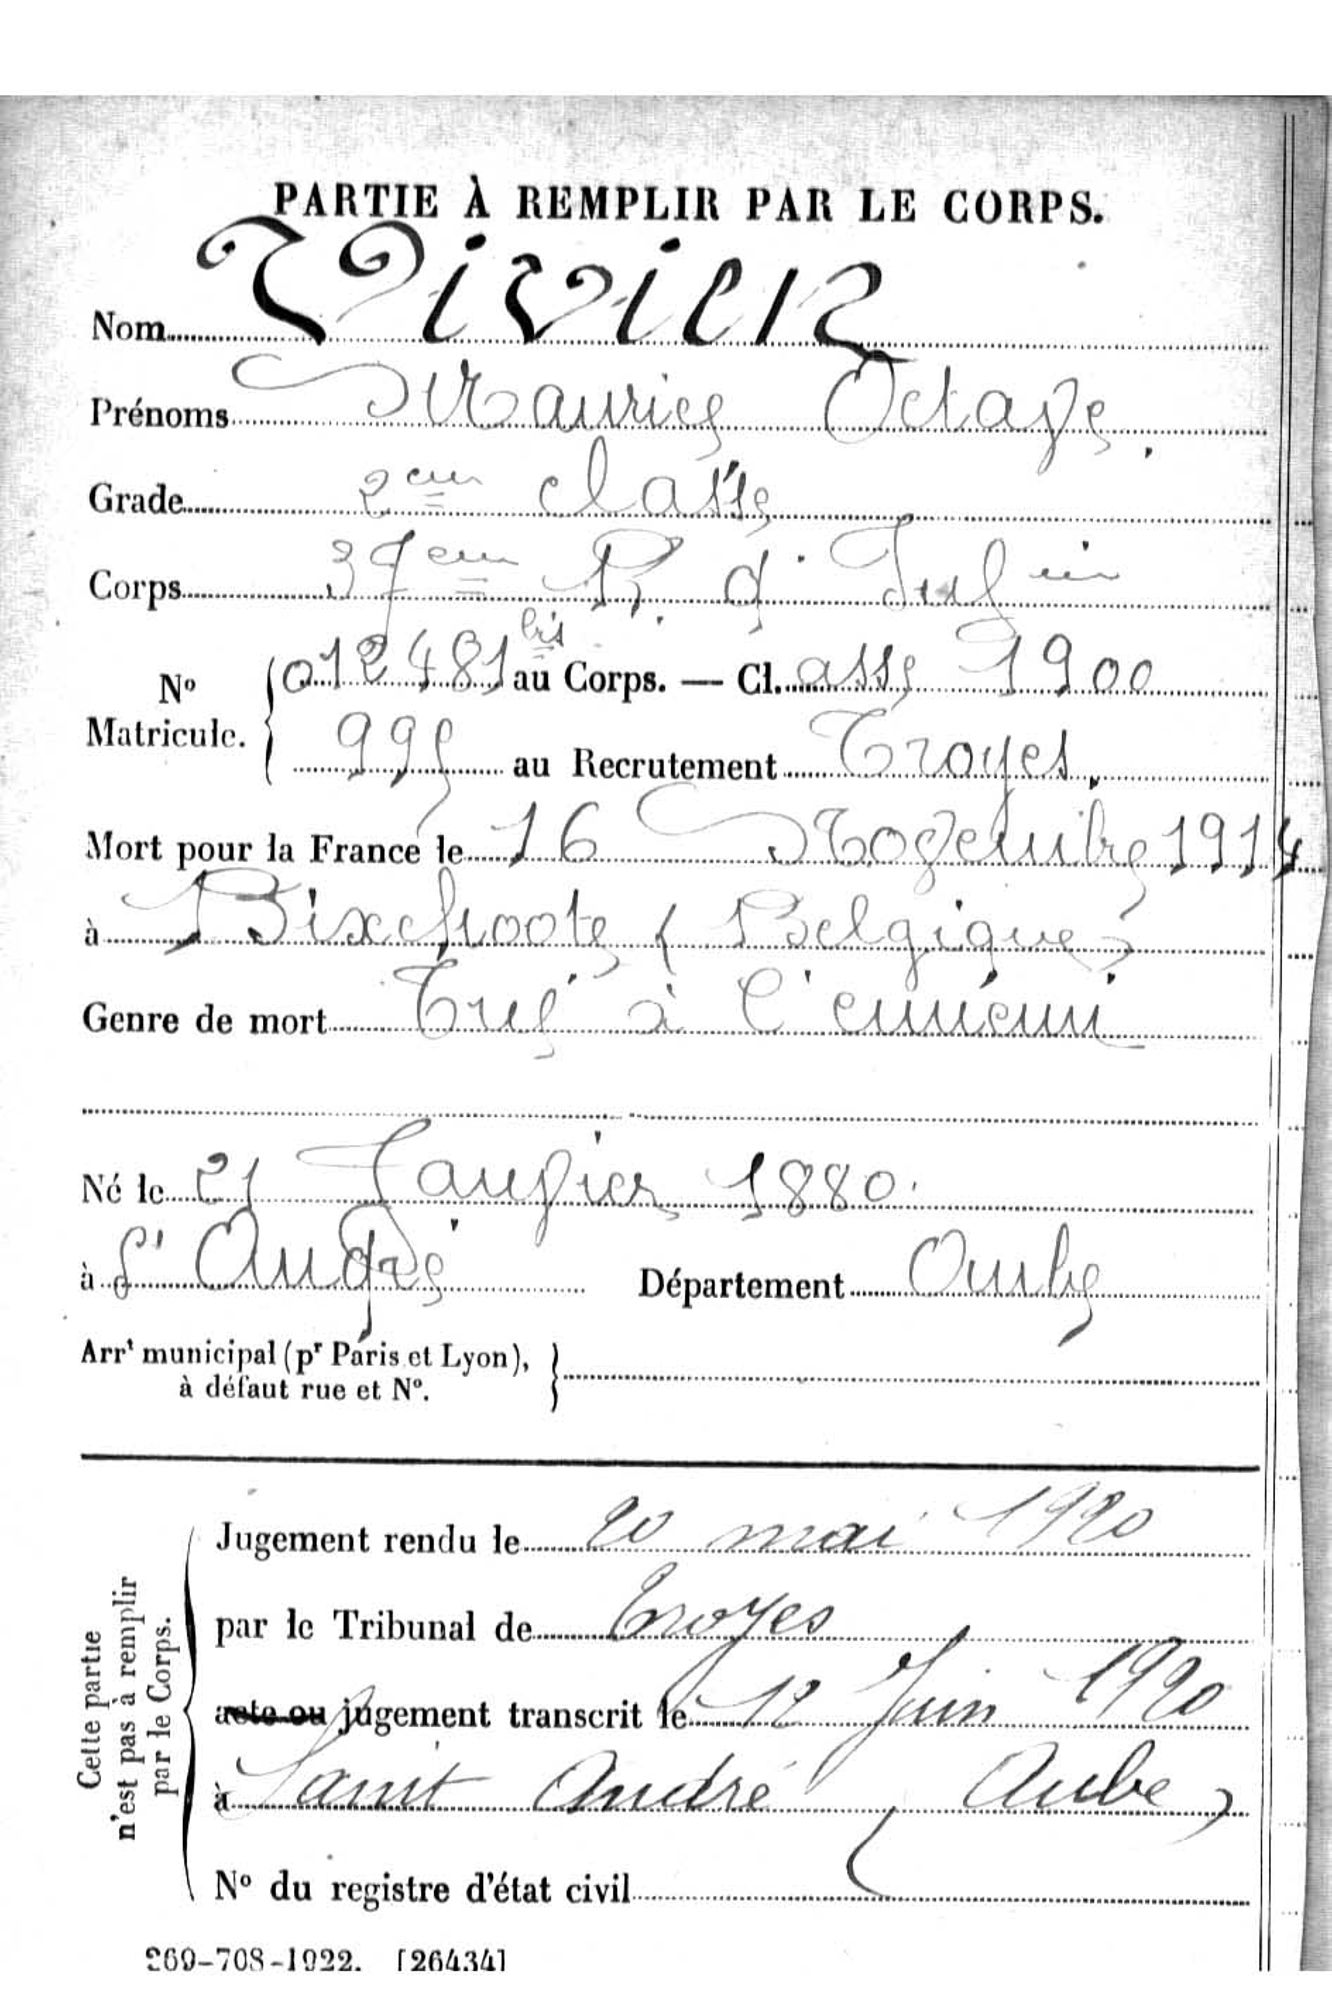 PARTIE À REMPLIR PAR LE CORPS.
Nom Vivien
Prénoms Maurice Octave
Grade 2eme classe
Corps 37eme R. d'Inf ie
N° Matricule. 012481 bis au Corps. — Cl. asse 1900
995 au Recrutement Troyes.
Mort pour la France le 16 Novembre 1914
à Bixchoote (Belgique)
Genre de mort Tué à l'ennemi
Né le 21 Janvier 1880.
à St André Département Aube
Arrt municipal (pr Paris et Lyon),
à défaut rue et N°.
Cette partie
n'est pas à remplir
par le Corps.
Jugement rendu le 20 mai 1920
par le Tribunal de Troyes
acte ou jugement transcrit le 12 Juin 1920
à Saint André (Aube)
N° du registre d'état civil
269-708-1922. [26434]